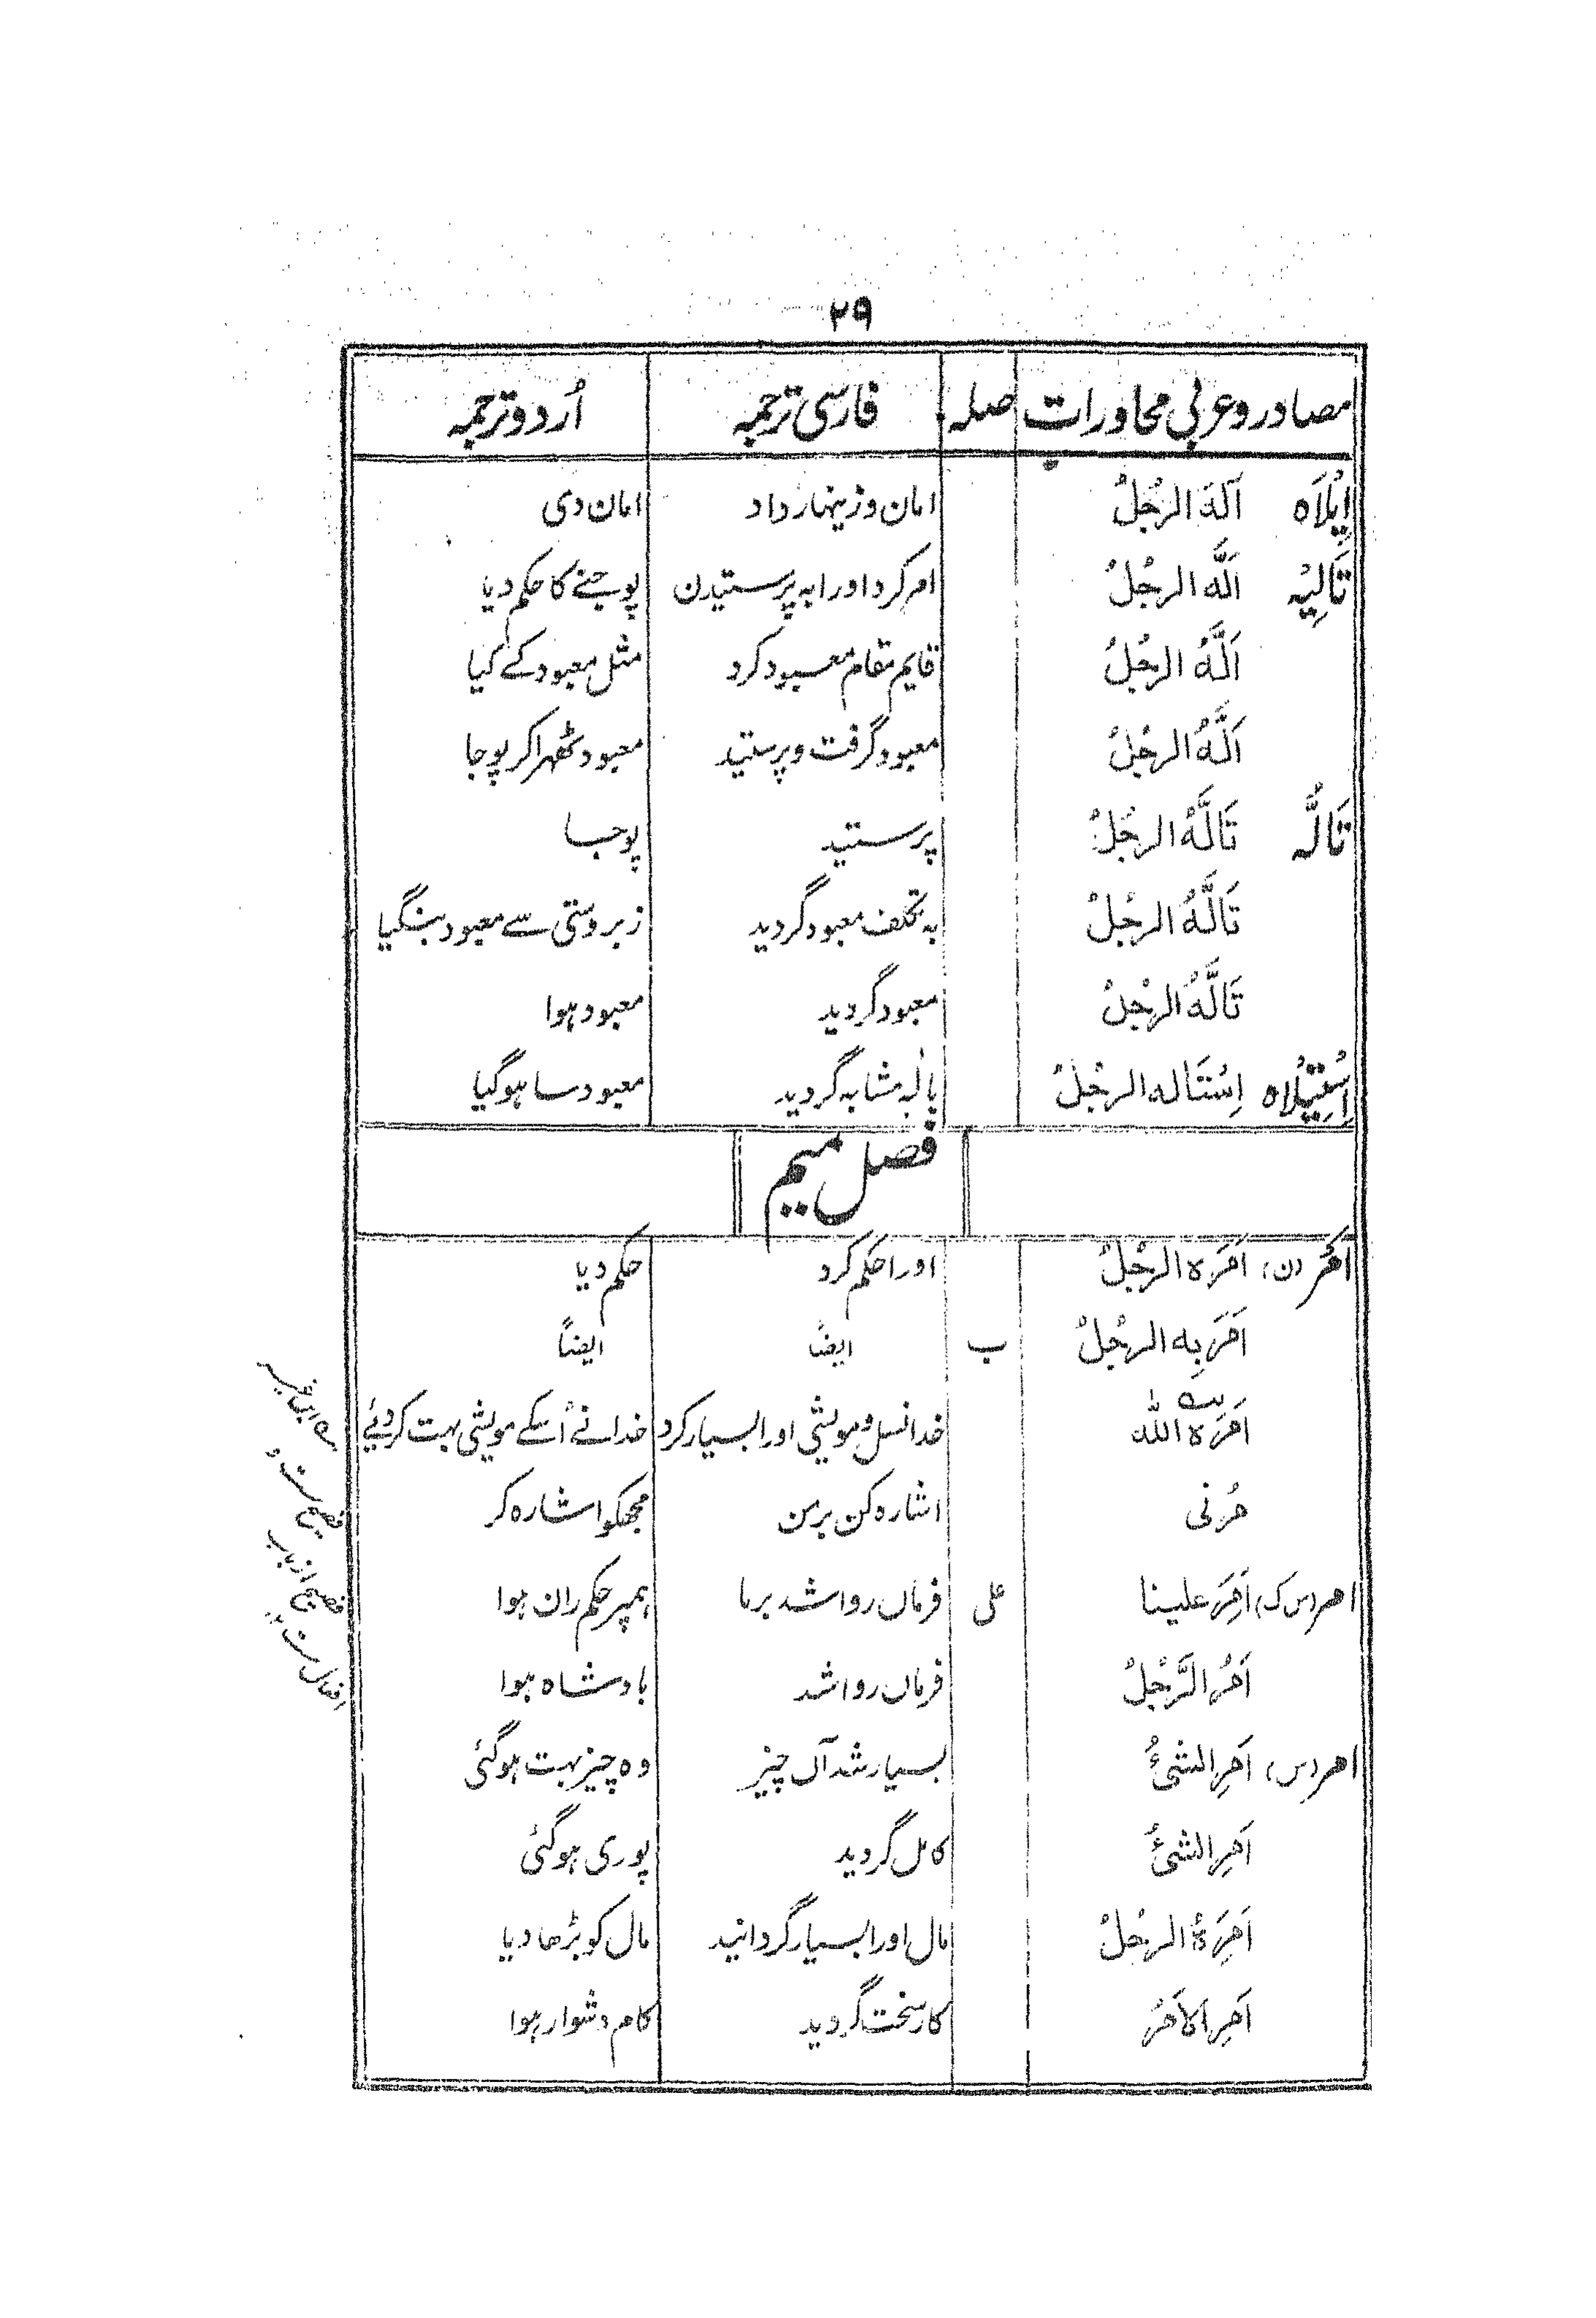 ۲۹
مصادر و عربی محاورات صلہ فارسی ترجمہ اُردو ترجمہ
اِیْلَاہ اٰلَهَ الرجُلُ امان و زینہار داد امان دی
تَالِیْہ اَلَّهَ الرجُلُ امر کرد اورا بہ پرستیدن پوجنے کا حکم دیا
اَلَّهُ الرجُلُ قایم مقام معبود کرد مثل معبود کے کیا
اَلَّهُ الرجُلُ معبود گرفت و پرستید معبود ٹھہرا کر پوجا
تَالُّہ تَالَّهُ الرجُلُ پرستید پوجا
تَالَّهُ الرجُلُ بہ تکلف معبود گردید زبردستی سے معبود بنگیا
تَالَّهُ الرجُلُ معبود گردید معبود ہوا
اِسْتِیْلَاہ اِسْتَاله الرجُلُ بالٰہ مشابہ گردید معبود سا ہوگیا
فصل میم
اَمْر (ن) اَمَرَہ الرجُلُ اورا حکم کرد حکم دیا
اَمَرَ بِه الرجُلُ ب ایضاً ایضاً
اَمَرَہ الله خدا نسل و مویشی اورا بسیار کرد خدا نے اُسکے مویشی بہت کر دئیے
مُرنی اشارہ کن برمن مجھکو اشارہ کر
امر (س ک) اَمِرَ علینا علی فرماں روا شد برما ہمپر حکم ران ہوا
اَمُرَ الرَّجُلُ فرماں روا شد بادشاہ ہوا
امر (س) اَمِرَ الشیُٔ بسیار شد آں چیز وہ چیز بہت ہوگئی
اَمِرَ الشیُٔ کامل گردید پوری ہوگئی
اَمِرَہُ الرجُلُ مال اورا بسیار گردانید مال کو بڑھا دیا
اَمِرَ الاَمْرُ کار سخت گردید کام دشوار ہوا
ایں غیر
فصیح ست و
فصیح از باب
افعال ست